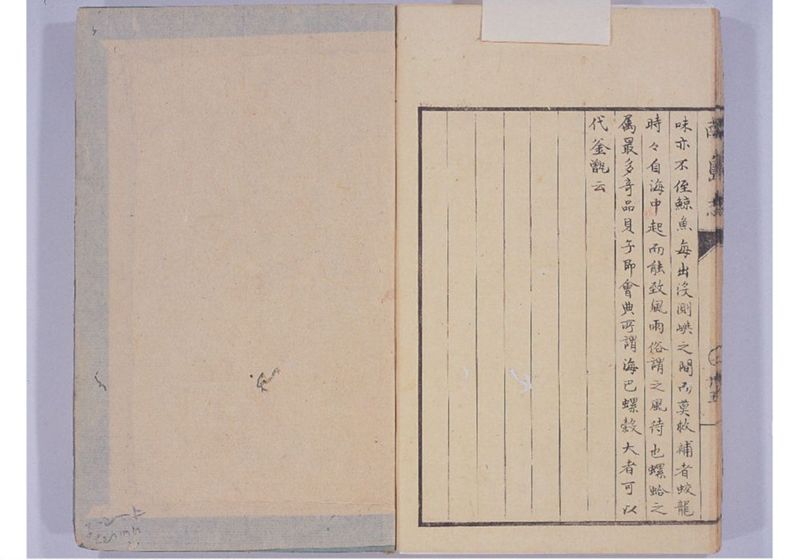 味亦不侄鯨魚每出没測峡之間而莫敢補者蛟龍
時々自海中起而能致風雨俗謂之風待也螺蛤之
属最多奇品貝子即會典所謂海巴螺殻大者可以
代釜甑云
南島志